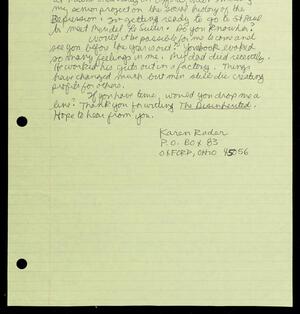 my senior project on the social history of the
Depression. I'm getting ready to go to St Paul
to meet Meridel Le Sueur. Do you know her?
Would it be possible for me to come and
see you before the year is out? Your book evoked
so many feelings in me. My dad died recently.
He worked his guts out in a factory. Things
have changed much but men still die creating
profits for others.
If you have time, would you drop me a
line? Thank you for writing The Disinherited.
Hope to hear from you.
Karen Rader
P.O. Box 83
OXFORD, OHIO 45056